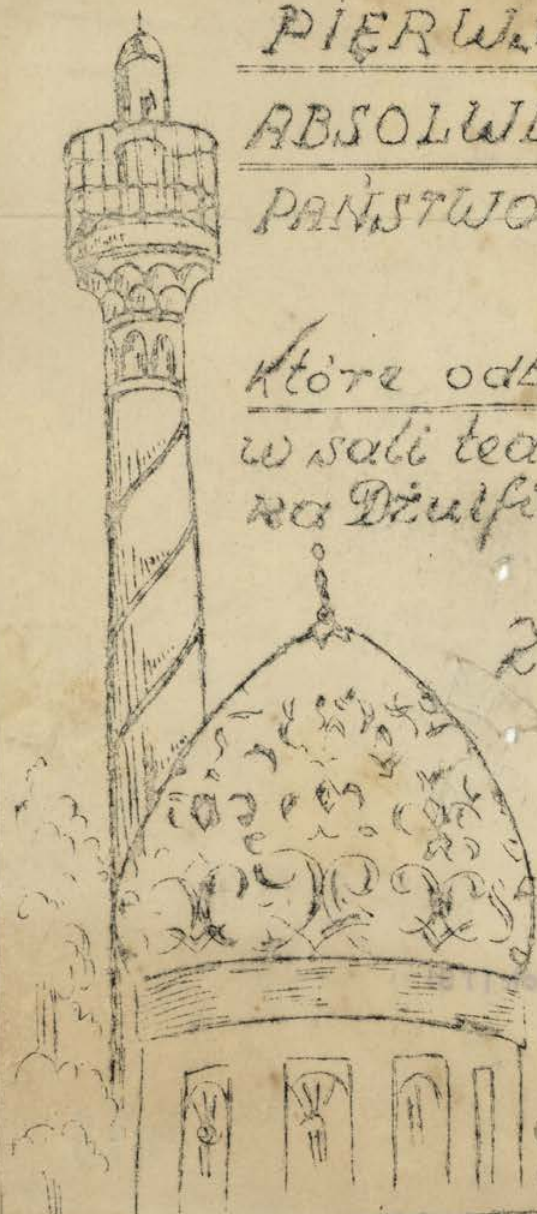 PIERW
ABSOLW
PAŃSTWO
które odb
w sali tea
na Dżulfi
2